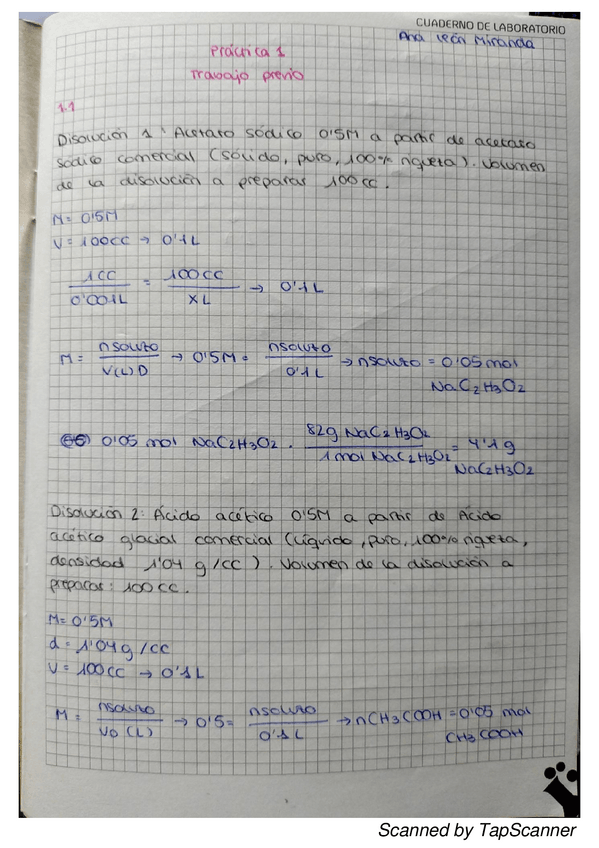 CUADERNO DE LABORATORIO
Ana León Miranda
Práctica 1
Trabajo previo
1.1
Disolución 1: Acetato sódico 0'5M a partir de acetato
sódico comercial (sólido, puro, 100% riqueza). Volumen
de la disolución a preparar 100cc.
M = 0'5M
V = 100cc → 0'1L
1cc / 0'001L = 100cc / XL → 0'1L
M = nsoluto / V(L)D → 0'5M = nsoluto / 0'1L → nsoluto = 0'05 mol
NaC2H3O2
0'05 mol NaC2H3O2 · 82g NaC2H3O2 / 1mol NaC2H3O2 = 4'1g
NaC2H3O2
Disolución 2: Ácido acético 0'5M a partir de Ácido
acético glacial comercial (líquido, puro, 100% riqueza,
densidad 1'04 g/cc). Volumen de la disolución a
preparar: 100cc.
M = 0'5M
d = 1'04g/cc
V = 100cc → 0'1L
M = nsoluto / VD (L) → 0'5 = nsoluto / 0'1L → nCH3COOH = 0'05 mol
CH3COOH
Scanned by TapScanner